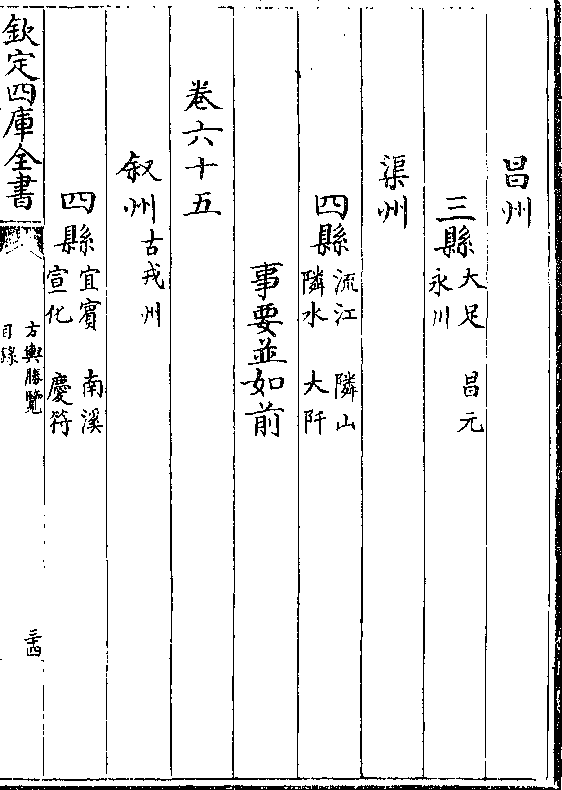 昌州
三縣大足 昌元
永川
渠州
四縣流江 隣山
隣水 大阡
事要並如前
卷六十五
叙州古戎州
四縣宜賓 南溪
宣化 慶符
欽定四庫全書
方輿勝覽
目錄
三十四